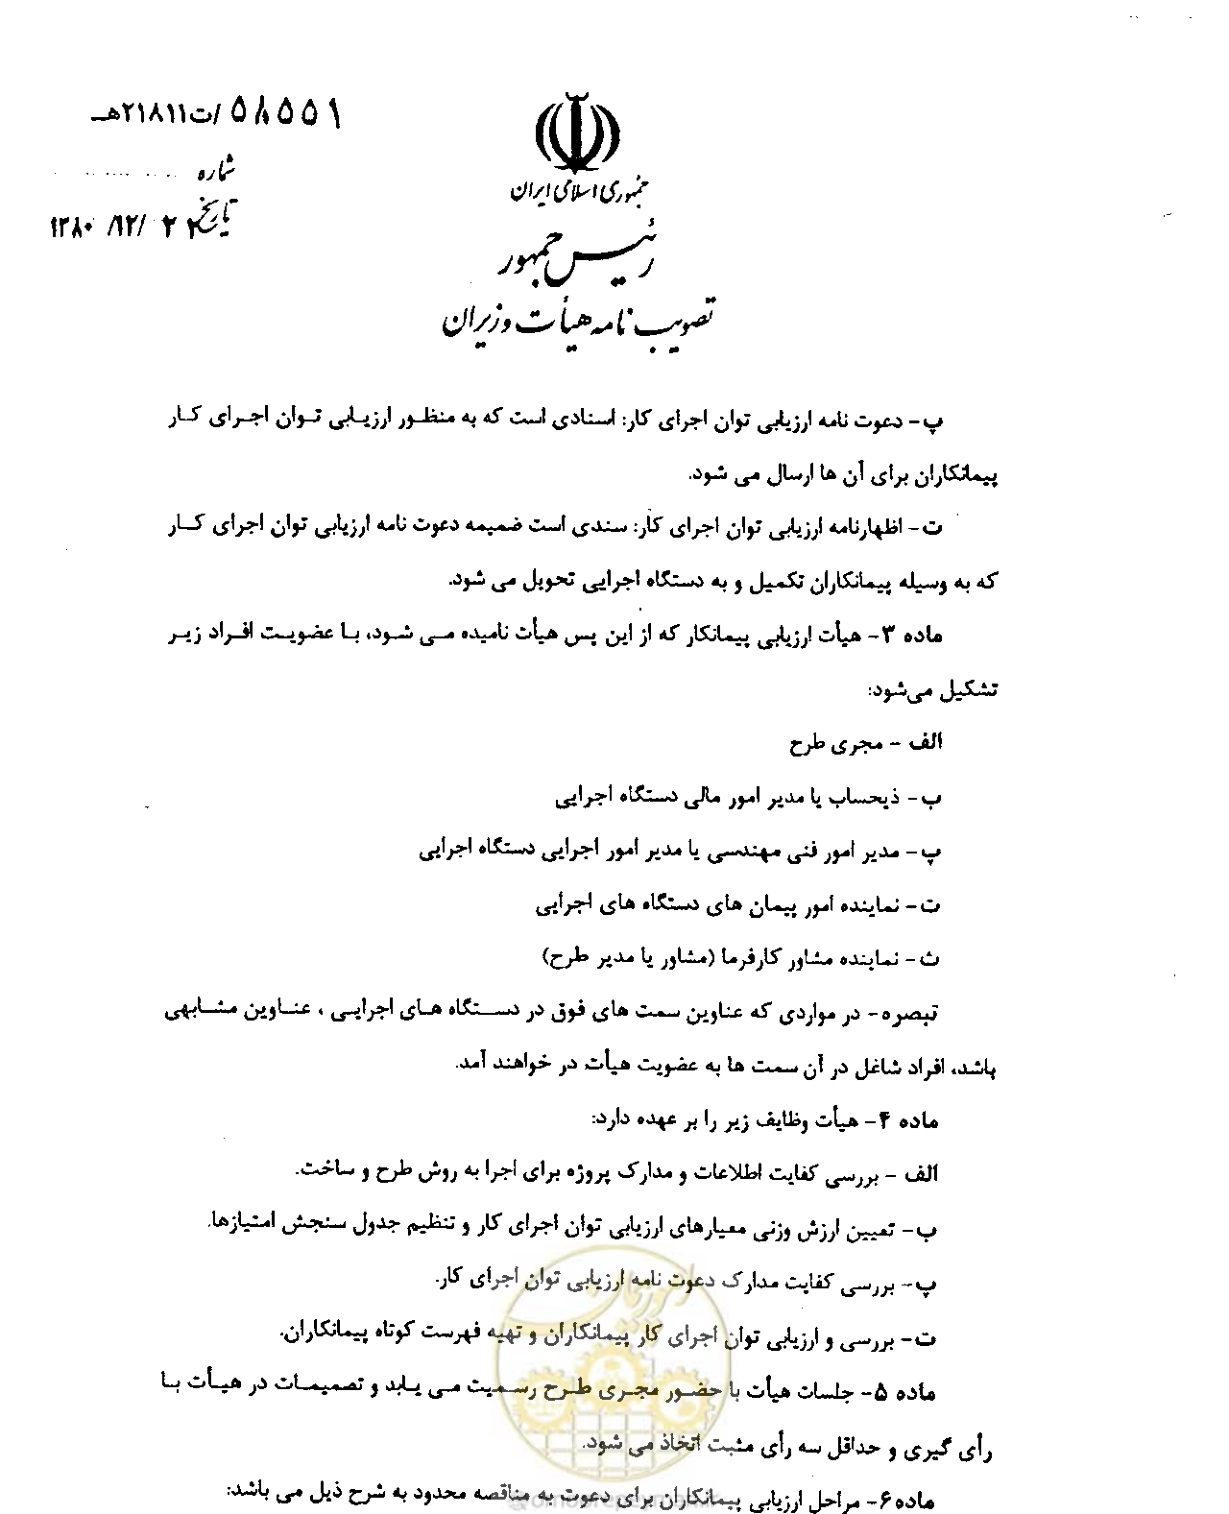 ۵۸۵۵۱/ت۲۱۸۱۱هـ
شماره
تاریخ ۲۲ /۱۲/ ۱۳۸۰
جمهوری اسلامی ایران
رئیس جمهور
تصویب نامه هیأت وزیران
پ- دعوت نامه ارزیابی توان اجرای کار: اسنادی است که به منظور ارزیابی توان اجرای کار
پیمانکاران برای آن ها ارسال می شود.
ت- اظهارنامه ارزیابی توان اجرای کار: سندی است ضمیمه دعوت نامه ارزیابی توان اجرای کار
که به وسیله پیمانکاران تکمیل و به دستگاه اجرایی تحویل می شود.
ماده ۳- هیأت ارزیابی پیمانکار که از این پس هیأت نامیده می شود، با عضویت افراد زیر
تشکیل می‌شود:
الف - مجری طرح
ب- ذیحساب یا مدیر امور مالی دستگاه اجرایی
پ- مدیر امور فنی مهندسی یا مدیر امور اجرایی دستگاه اجرایی
ت- نماینده امور پیمان های دستگاه های اجرایی
ث- نماینده مشاور کارفرما (مشاور یا مدیر طرح)
تبصره- در مواردی که عناوین سمت های فوق در دستگاه های اجرایی ، عناوین مشابهی
باشد، افراد شاغل در آن سمت ها به عضویت هیأت در خواهند آمد.
ماده ۴- هیأت وظایف زیر را بر عهده دارد:
الف - بررسی کفایت اطلاعات و مدارک پروژه برای اجرا به روش طرح و ساخت.
ب- تعیین ارزش وزنی معیارهای ارزیابی توان اجرای کار و تنظیم جدول سنجش امتیازها.
پ- بررسی کفایت مدارک دعوت نامه ارزیابی توان اجرای کار.
ت- بررسی و ارزیابی توان اجرای کار پیمانکاران و تهیه فهرست کوتاه پیمانکاران.
ماده ۵- جلسات هیأت با حضور مجری طرح رسمیت می یابد و تصمیمات در هیأت با
رأی گیری و حداقل سه رأی مثبت اتخاذ می شود.
ماده۶- مراحل ارزیابی پیمانکاران برای دعوت به مناقصه محدود به شرح ذیل می باشد: